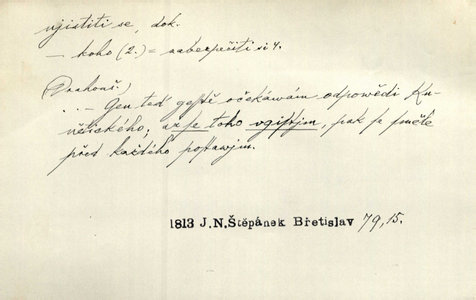 ujistiti se, dok.
– koho (2.) = zabezpečiti si 4.
(Drahouš.)
.. – Gen teď geště očekáwám odpowědi Ku-
nětického; až se toho vgistjm, pak se směle
před každého postawjm.
1813 J.N.Štěpánek Břetislav 79,15.